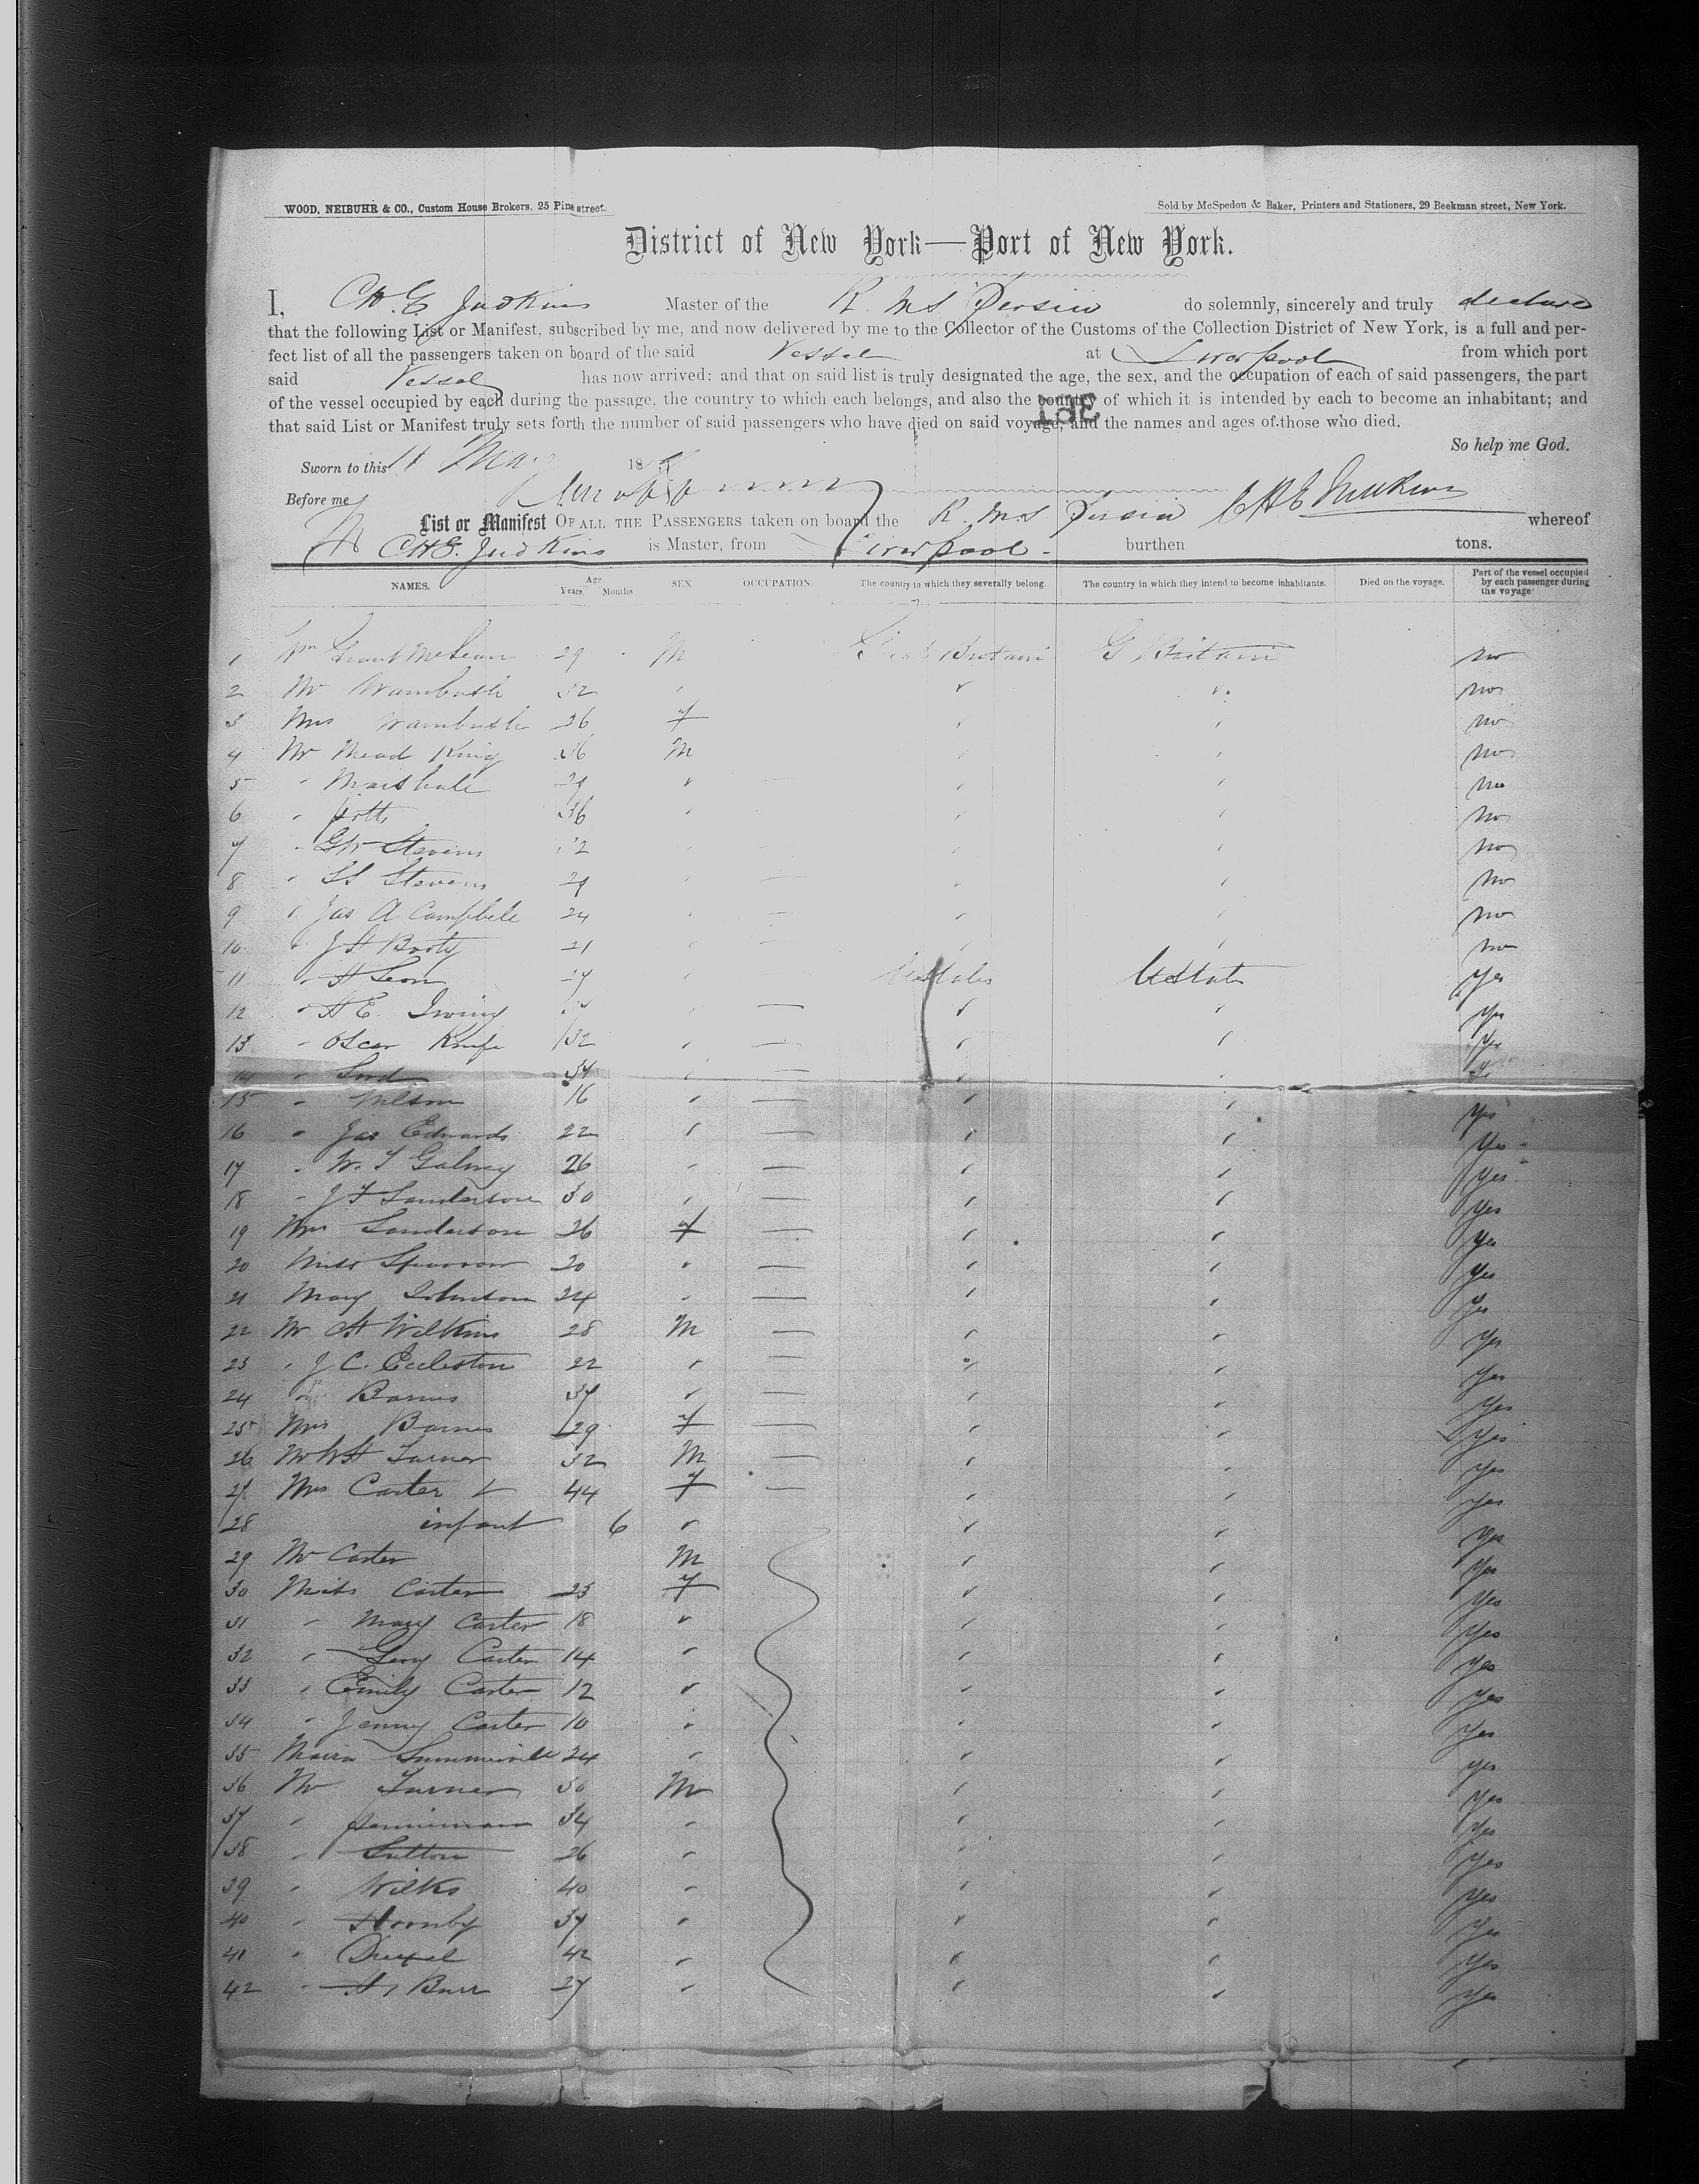 WOOD, NEIBUHR & CO., Custom House Brokers, 25 Pine street.
Sold by McSpedon & Baker, Printers and Stationers, 29 Beekman street, New York.
District of New York—Port of New York.
I, CH. E Judkins Master of the R. M S Persia do solemnly, sincerely and truly declare
that the following List or Manifest, subscribed by me, and now delivered by me to the Collector of the Customs of the Collection District of New York, is a full and per-
fect list of all the passengers taken on board of the said Vessel at Liverpool from which port
said Vessel has now arrived: and that on said list is truly designated the age, the sex, and the occupation of each of said passengers, the part
of the vessel occupied by each during the passage, the country to which each belongs, and also the country of which it is intended by each to become an inhabitant; and
that said List or Manifest truly sets forth the number of said passengers who have died on said voyage, and the names and ages of those who died.
So help me God.
Sworn to this 11 May 18
Before me CHE Judkins
List or Manifest OF ALL THE PASSENGERS taken on board the R. M.S Persia whereof
CHE. Judkins is Master, from Liverpool - burthen tons.
NAMES. Age Years. Months SEX OCCUPATION. The country to which they severally belong. The country in which they intend to become inhabitants. Died on the voyage. Part of the vessel occupied by each passenger during the voyage
1 Wm Grant McLean 29 M Great Britain G Britain no
2 Mr Wambush 32 no
3 Mrs Wambush 36 f no
4 Mr Mead King 36 M no
5 " Marshale 29 no
6 " Potts 36 no
7 " GW Stevens 32 no
8 " SS Stevens 29 no
9 " Jas A Campbele 24 no
10 " J H Booty 21 no
11 " H Leon 27 UStates UStates yes
12 " H E. Irving yes
13 " Oscar Knipe 32 yes
14 " Lord 34
15 " Wilson 16 yes
16 " Jas Edwards 22 yes
17 " W. T Galwey 26 yes
18 " J F Sanderson 30 yes
19 Mrs Sanderson 26 f yes
20 Miss Sparrow 20 yes
21 Mary Johnson 24 yes
22 Mr CH Wilkins 28 M yes
23 " J C. Eccleston 22 yes
24 " Barnes 37 yes
25 Mrs Barnes 29 f yes
26 Mr WH Turner 32 M yes
27 Mrs Carter & 44 f yes
28 infant 6 yes
29 Mr Carter M yes
30 Miss Carter 23 f yes
31 " Mary Carter 18 yes
32 " Carter 14 yes
33 " Emily Carter 12 yes
34 " Jenny Carter 10 yes
35 Maria Summerville 24 yes
36 Mr Turner 30 M yes
37 " Penniman 34 yes
38 " Sutton 26 yes
39 " Wilks 40 yes
40 " Hornby 37 yes
41 " Drexel 42 yes
42 " H, Burr 27 yes